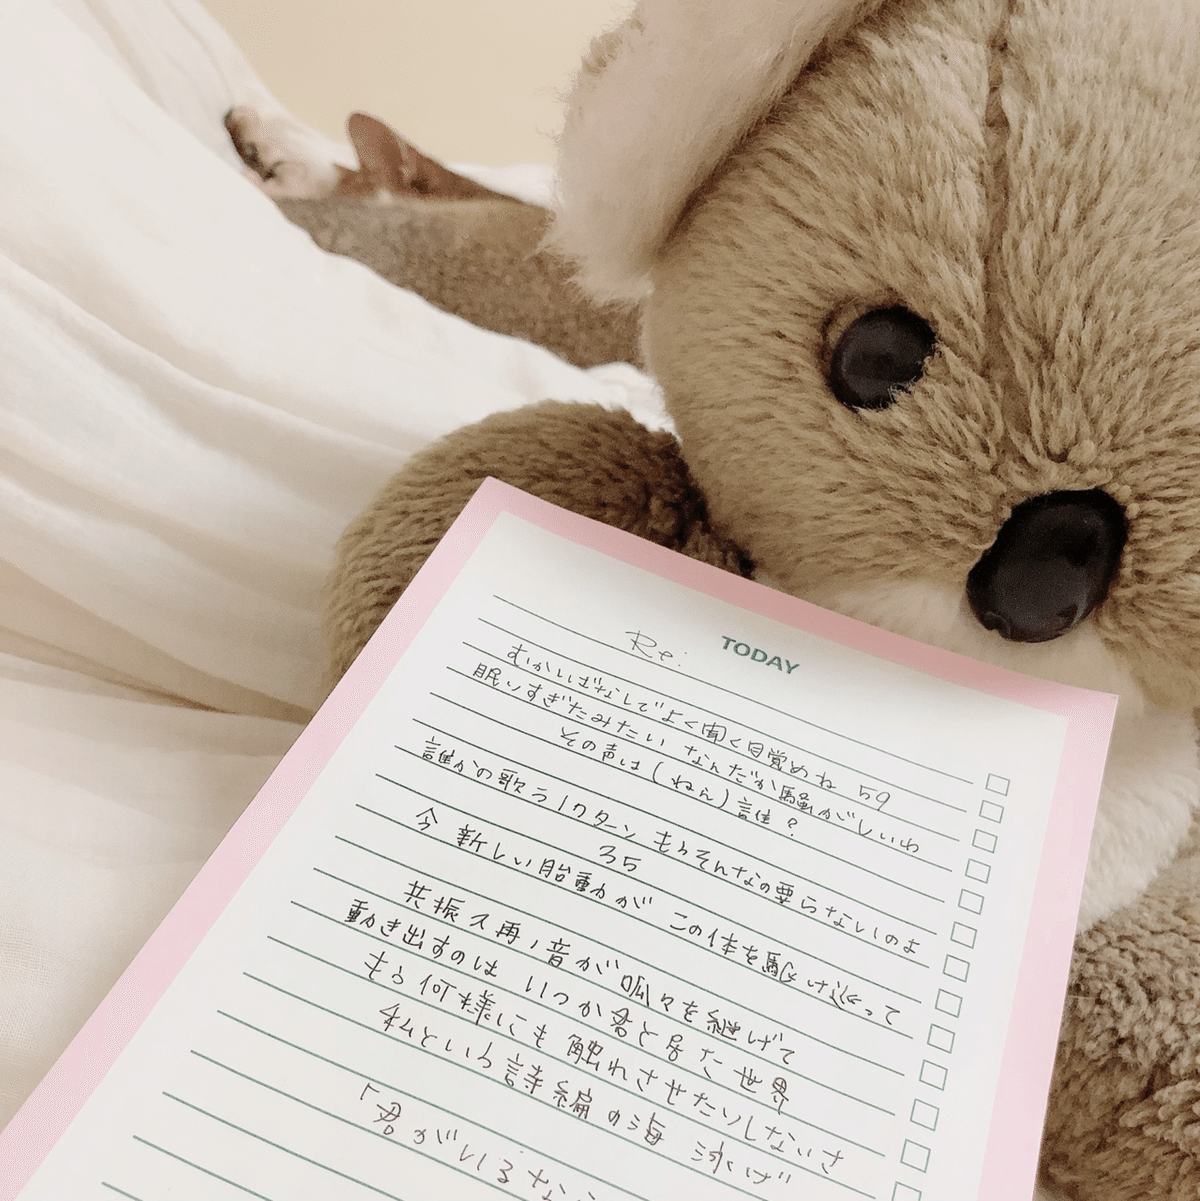 Re: TODAY
むかしばなしでよく聞く目覚めね 59
眠りすぎたみたい なんだか騒がしいわ
その声は(ねん)誰?
誰かの歌う1クターン もうそんなの要らないのよ
35
今 新しい胎動が この体を駆け巡って
共振ス再ノ音が呱々を継げて
動き出すのは いつか君と居た世界
もう何様にも 触れさせたりしないさ
私という詩編の海 泳いで
「君がいるな